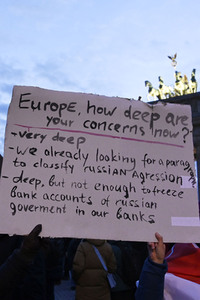 Europe, how deep are
your concerns now?
- very deep
- we already looking for a paragraph
to classify russian Agression
- deep, but not enough to freeze
bank accounts of russian
goverment in our banks